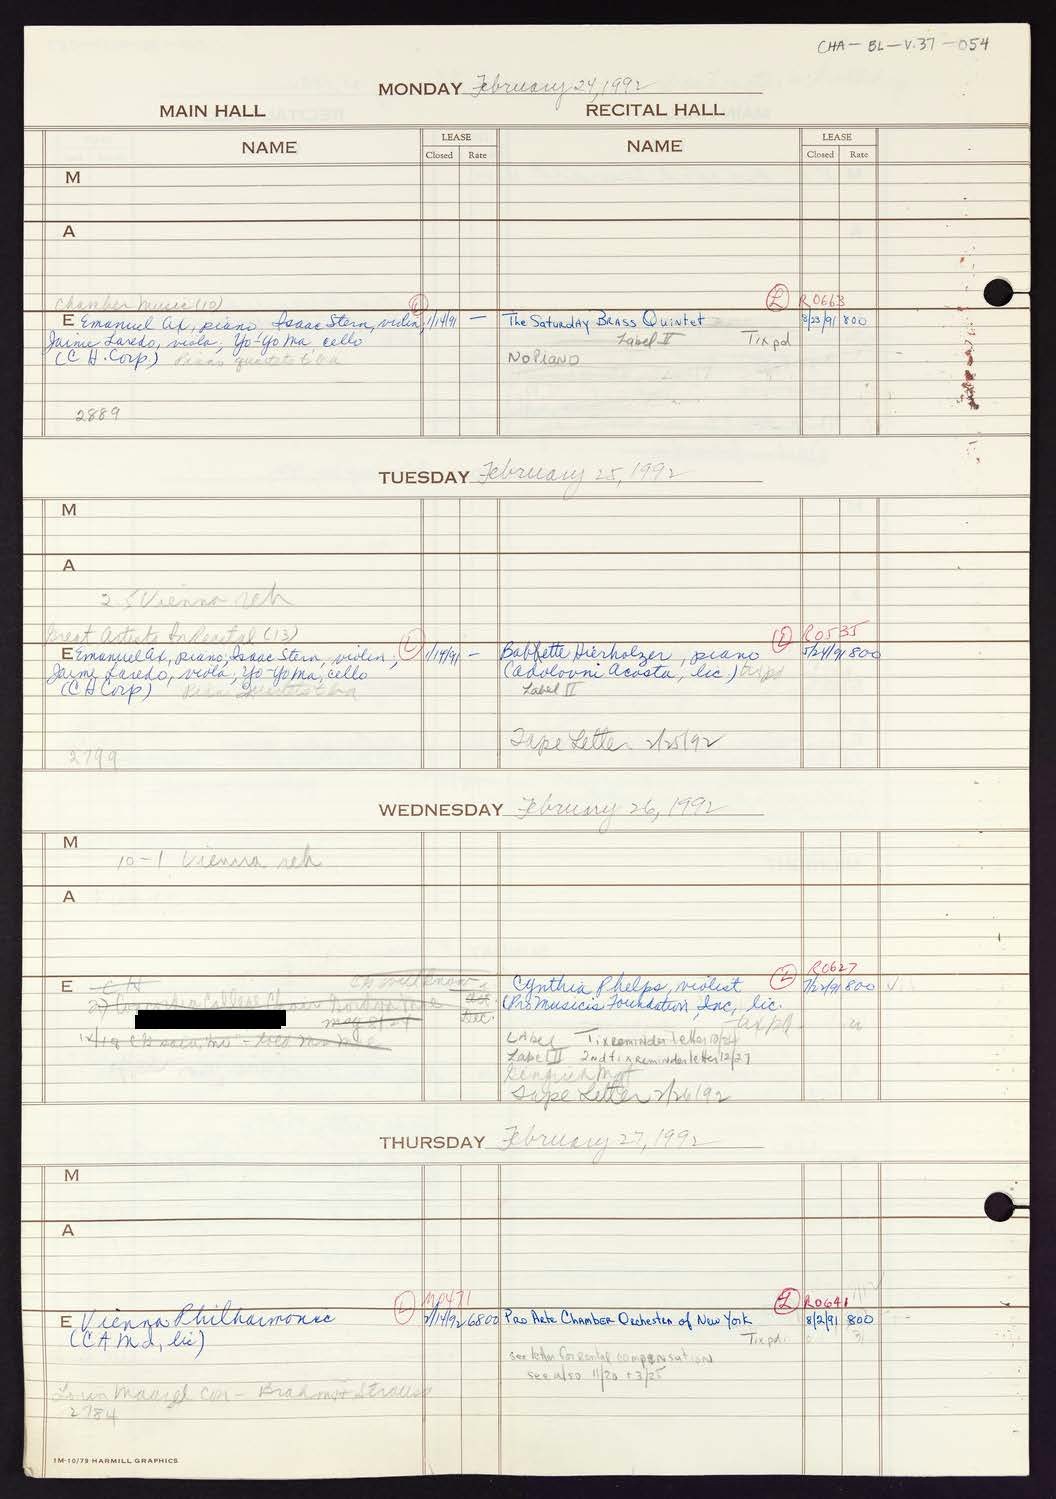 CHA-BL-V.37-054
MONDAY February 24, 1992
MAIN HALL RECITAL HALL
NAME LEASE Closed Rate NAME LEASE Closed Rate
M
A
Chamber Music (10) L R0663
E Emanuel Ax, piano, Isaac Stern, violin, 1/14/91 — The Saturday Brass Quintet 8/23/91 800
Jaime Laredo, viola, Yo-Yo Ma cello Label II Tix pd
(C H. Corp.) Piano quartets NO PIANO
2889
TUESDAY February 25, 1992
M
A
2-5 Vienna reh
Great Artists In Recital (13) L L R0535
E Emanuel Ax, piano, Isaac Stern, violin, 1/14/91 — Babfette Hierholzer, piano 5/24/91 800
Jaime Laredo, viola, Yo-Yo Ma, cello (Adolovni Acosta, lic.) tix pd
(C H Corp) Label II
Tape Letter 2/25/92
2799
WEDNESDAY February 26, 1992
M
10-1 Vienna reh
A
L R0627
E CH Cynthia Phelps, violist 7/22/91 800
(Pro Musicis Foundation, Inc, lic.
tix pd
Label Tix reminder letter
Label II 2nd tix reminder letter 12/27
Tape Letter 2/26/92
THURSDAY February 27, 1992
M
A
L MP471 L R0641
E Vienna Philharmonic 2/14/92 6800 Pro Arte Chamber Orchestra of New York 8/2/91 800
(CAMI, lic) Tix pd.
see letter for rental compensation
see also 11/20 + 3/25
Lorin Maazel con - Brahms + Strauss
2784
1M-10/79 HARMILL GRAPHICS